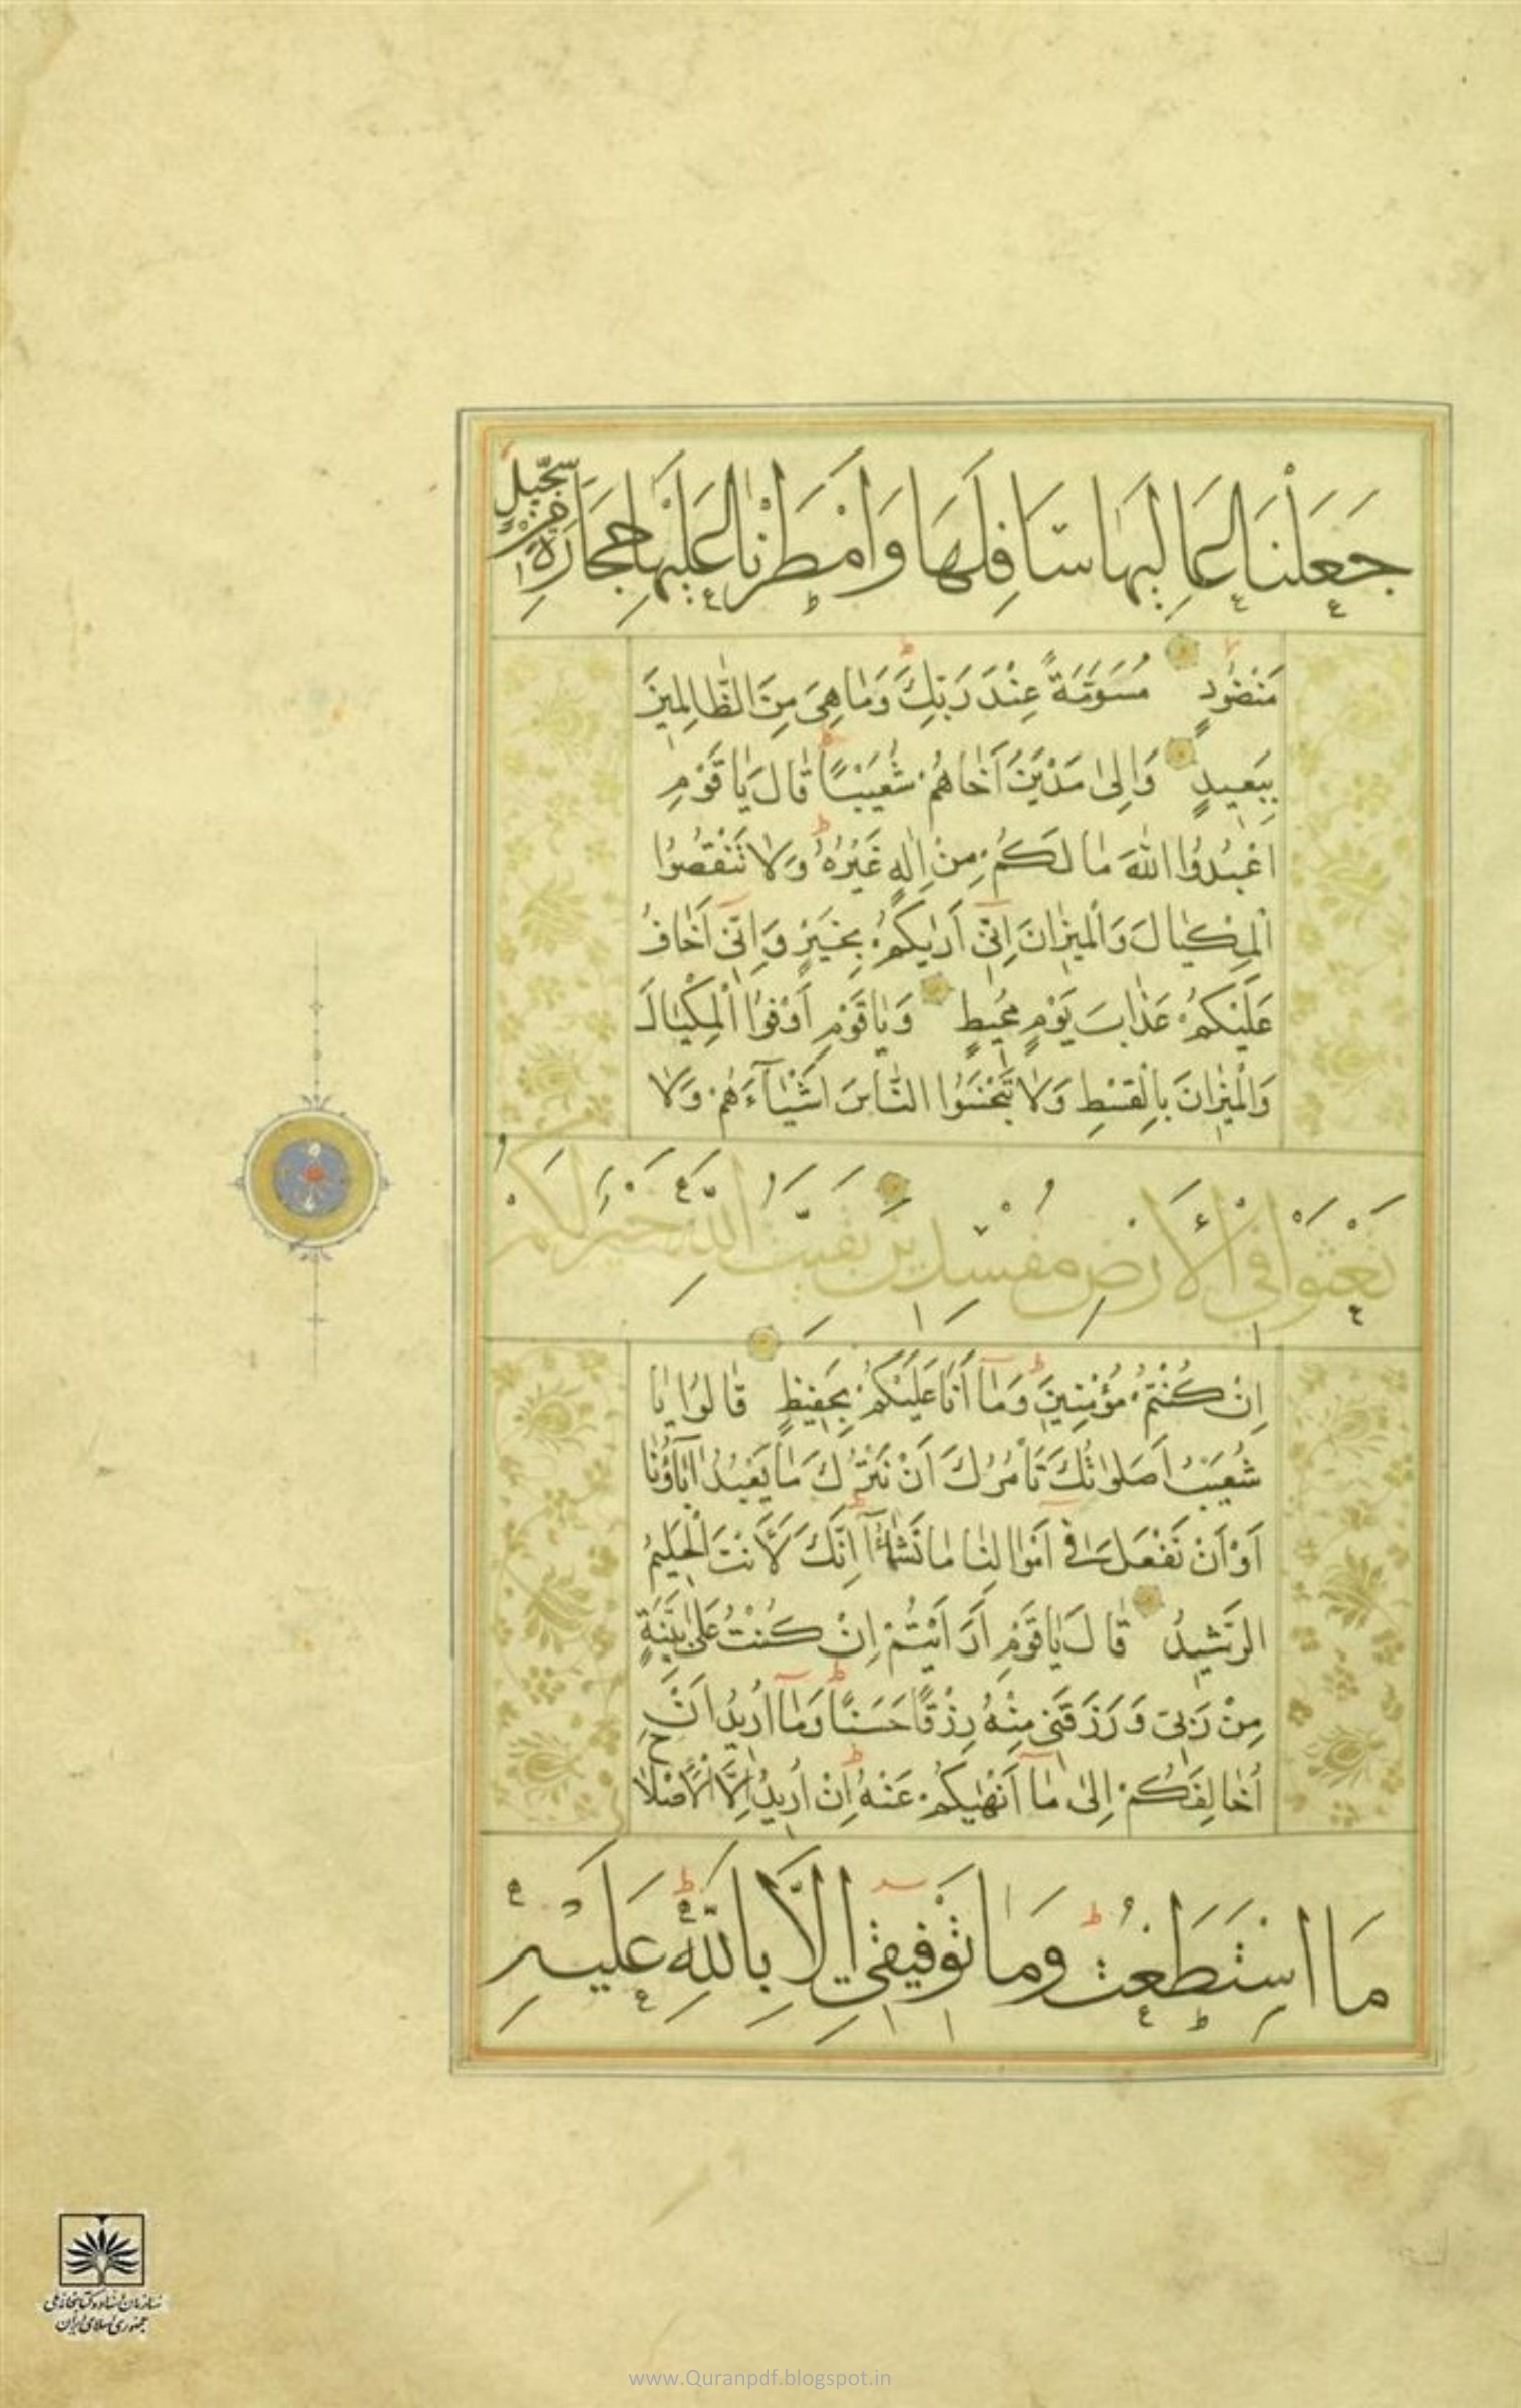 جَعَلْنَا عَالِيَهَا سَافِلَهَا وَأَمْطَرْنَا عَلَيْهَا حِجَارَةً مِنْ سِجِّيلٍ
مَنْضُودٍ مُسَوَّمَةً عِنْدَ رَبِّكَ وَمَا هِيَ مِنَ الظَّالِمِينَ
بِبَعِيدٍ وَإِلَىٰ مَدْيَنَ أَخَاهُمْ شُعَيْبًا قَالَ يَا قَوْمِ
اعْبُدُوا اللَّهَ مَا لَكُمْ مِنْ إِلَٰهٍ غَيْرُهُ وَلَا تَنْقُصُوا
الْمِكْيَالَ وَالْمِيزَانَ إِنِّي أَرَيٰكُمْ بِخَيْرٍ وَإِنِّي أَخَافُ
عَلَيْكُمْ عَذَابَ يَوْمٍ مُحِيطٍ وَيَا قَوْمِ أَوْفُوا الْمِكْيَالَ
وَالْمِيزَانَ بِالْقِسْطِ وَلَا تَبْخَسُوا النَّاسَ أَشْيَاءَهُمْ وَلَا
تَعْثَوْا فِي الْأَرْضِ مُفْسِدِينَ بَقِيَّتُ اللَّهِ خَيْرٌ لَكُمْ
إِنْ كُنْتُمْ مُؤْمِنِينَ وَمَا أَنَا عَلَيْكُمْ بِحَفِيظٍ قَالُوا يَا
شُعَيْبُ أَصَلَوٰتُكَ تَأْمُرُكَ أَنْ نَتْرُكَ مَا يَعْبُدُ آبَاؤُنَا
أَوْ أَنْ نَفْعَلَ فِي أَمْوَالِنَا مَا نَشَٰؤُا إِنَّكَ لَأَنْتَ الْحَلِيمُ
الرَّشِيدُ قَالَ يَا قَوْمِ أَرَأَيْتُمْ إِنْ كُنْتُ عَلَىٰ بَيِّنَةٍ
مِنْ رَبِّي وَرَزَقَنِي مِنْهُ رِزْقًا حَسَنًا وَمَا أُرِيدُ أَنْ
أُخَالِفَكُمْ إِلَىٰ مَا أَنْهَيٰكُمْ عَنْهُ إِنْ أُرِيدُ إِلَّا الْإِصْلَاحَ
مَا اسْتَطَعْتُ وَمَا تَوْفِيقِي إِلَّا بِاللَّهِ عَلَيْهِ
سازمان اسناد و کتابخانه ملی
جمهوری اسلامی ایران
www.Quranpdf.blogspot.in